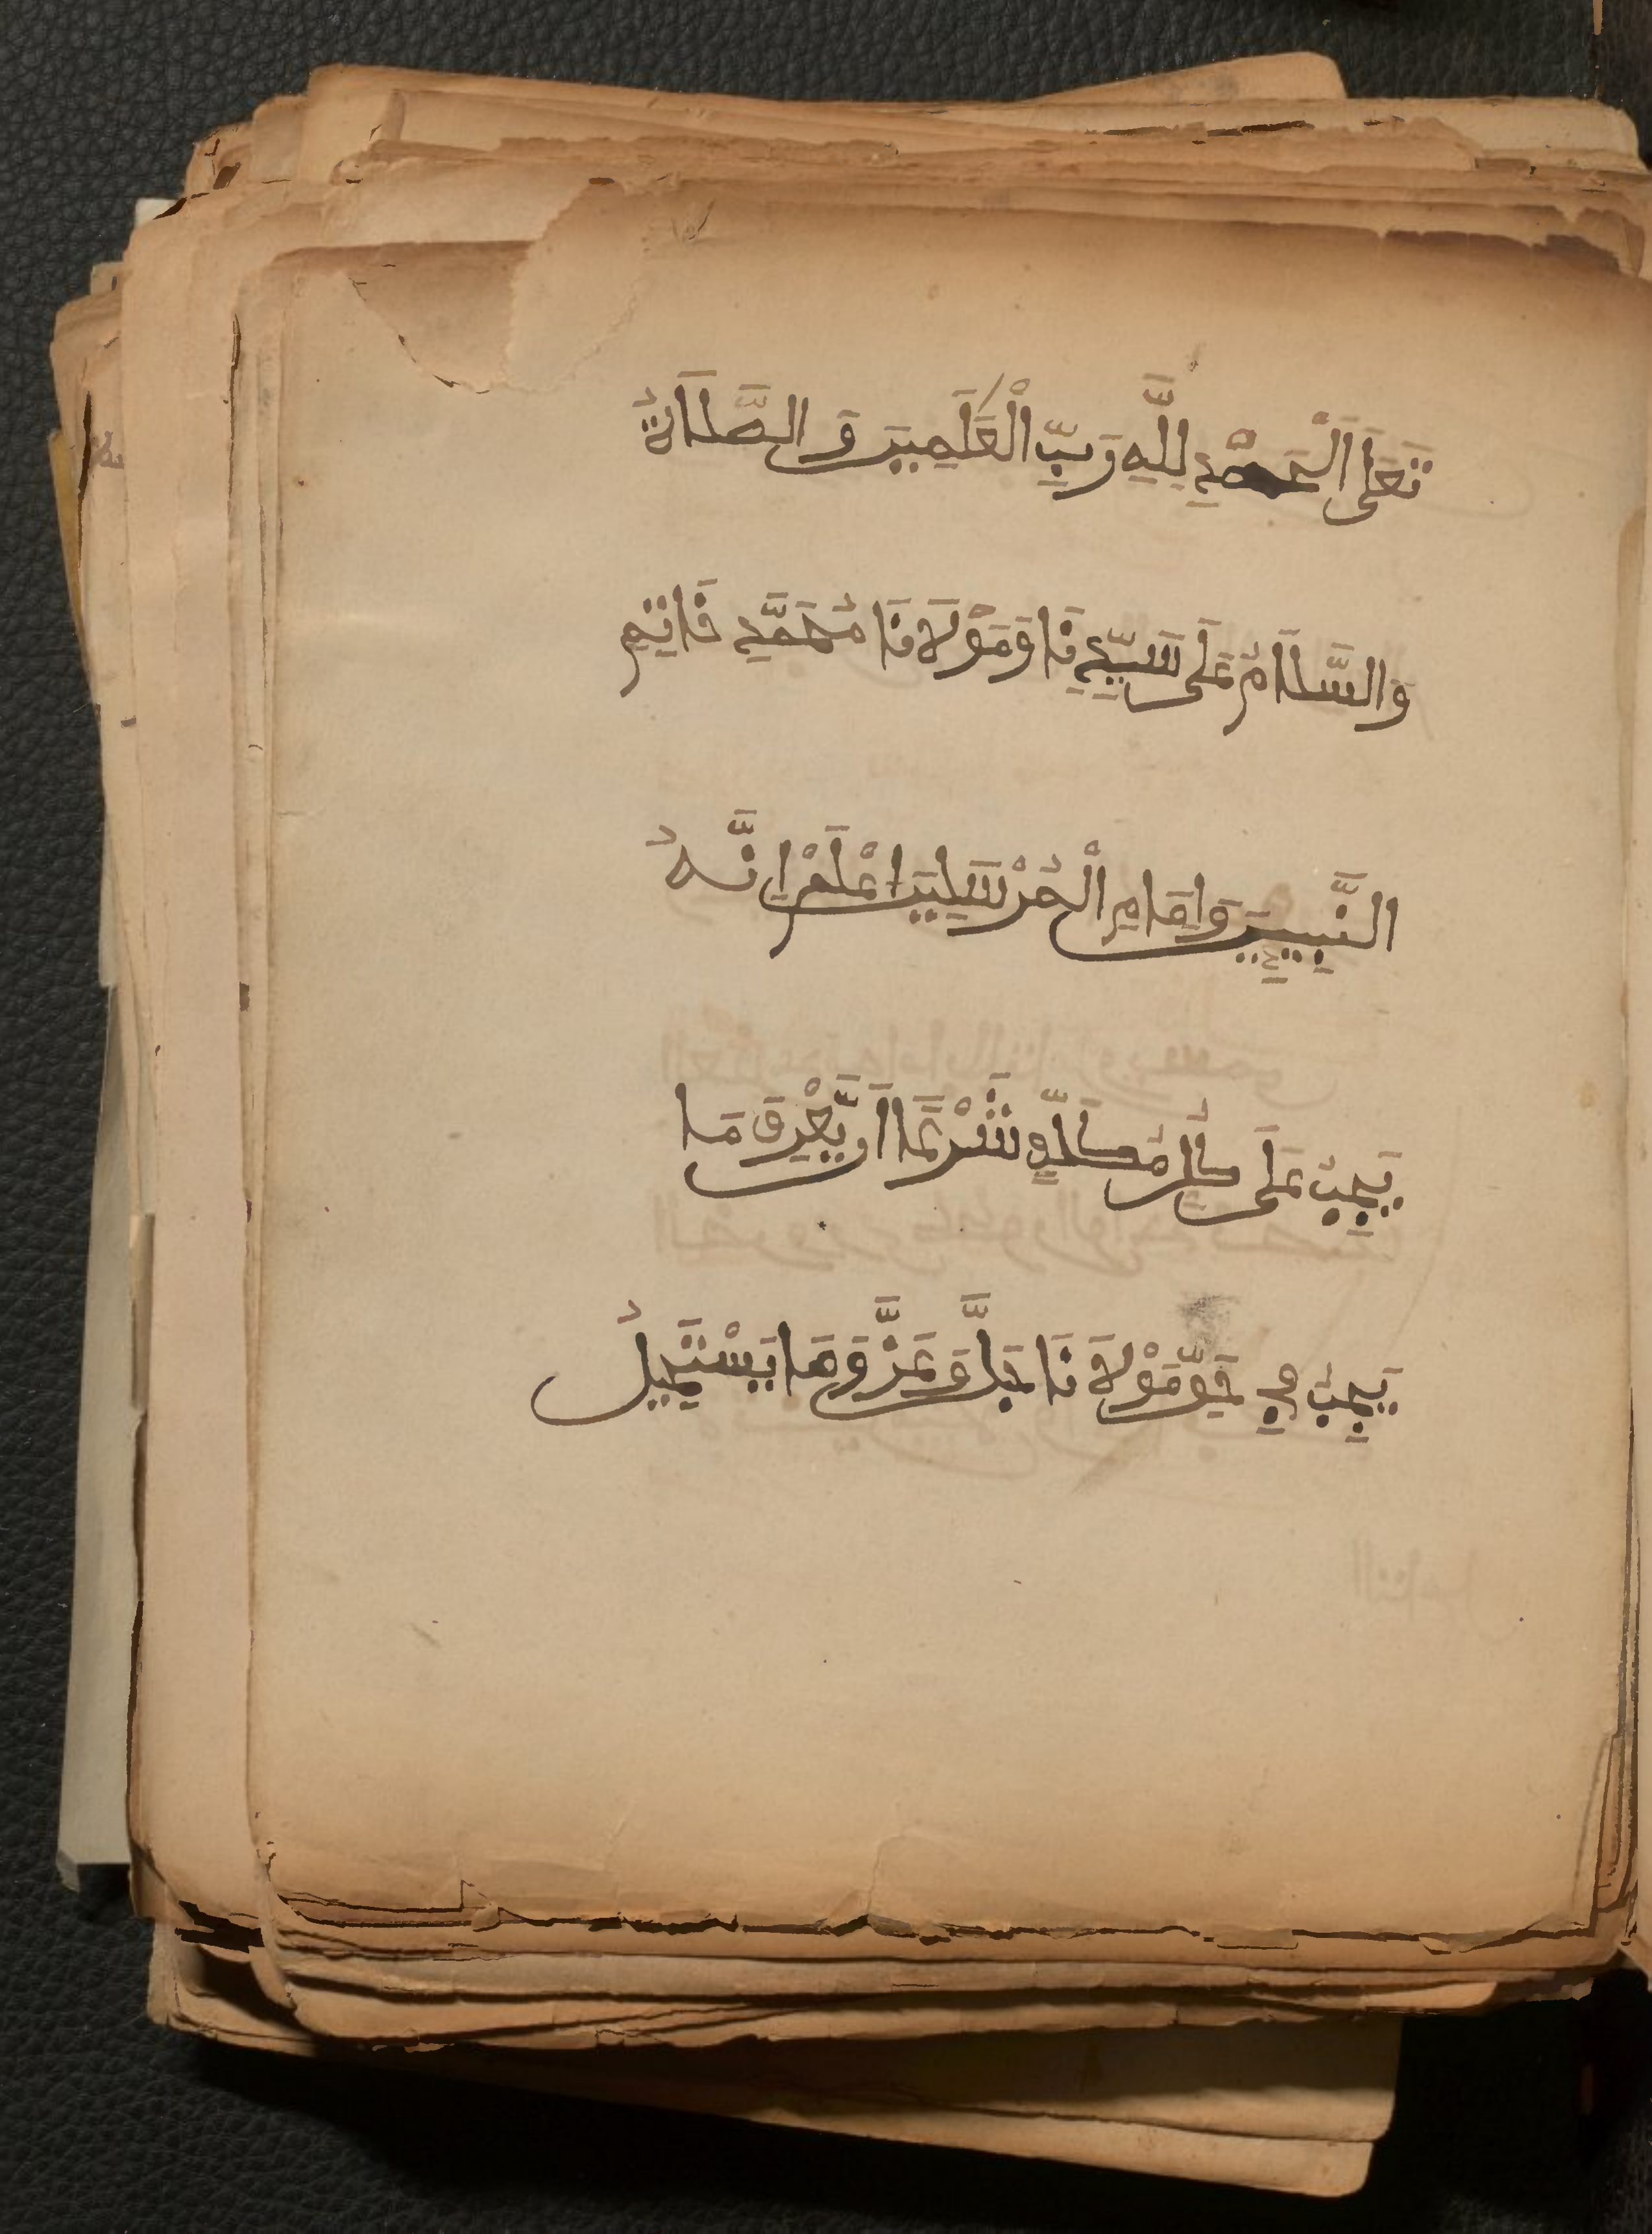 تَعَلَى اَلْحَمْدُ لِلَّهِ رَبِّ الْعَلَمِينَ وَالصَّلَاةُ
وَالسَّلَامُ عَلَى سَيِّدِنَا وَمَوْلَانَا مُحَمَّدٍ خَاتِمِ
النَّبِيِينَ وَاِمَامِ الْمُرْسَلِينَ اِعْلَمْ اِنَّهُ
يَجِبُ عَلَى كُلِّ مُكَلَّفٍ شَرْعًا اَن يَّعْرِفَ مَا
يَجِبُ فِي حَقِّ مَوْلَانَا جَلَّ وَعَزَّ وَمَا يَسْتَحِيلُ